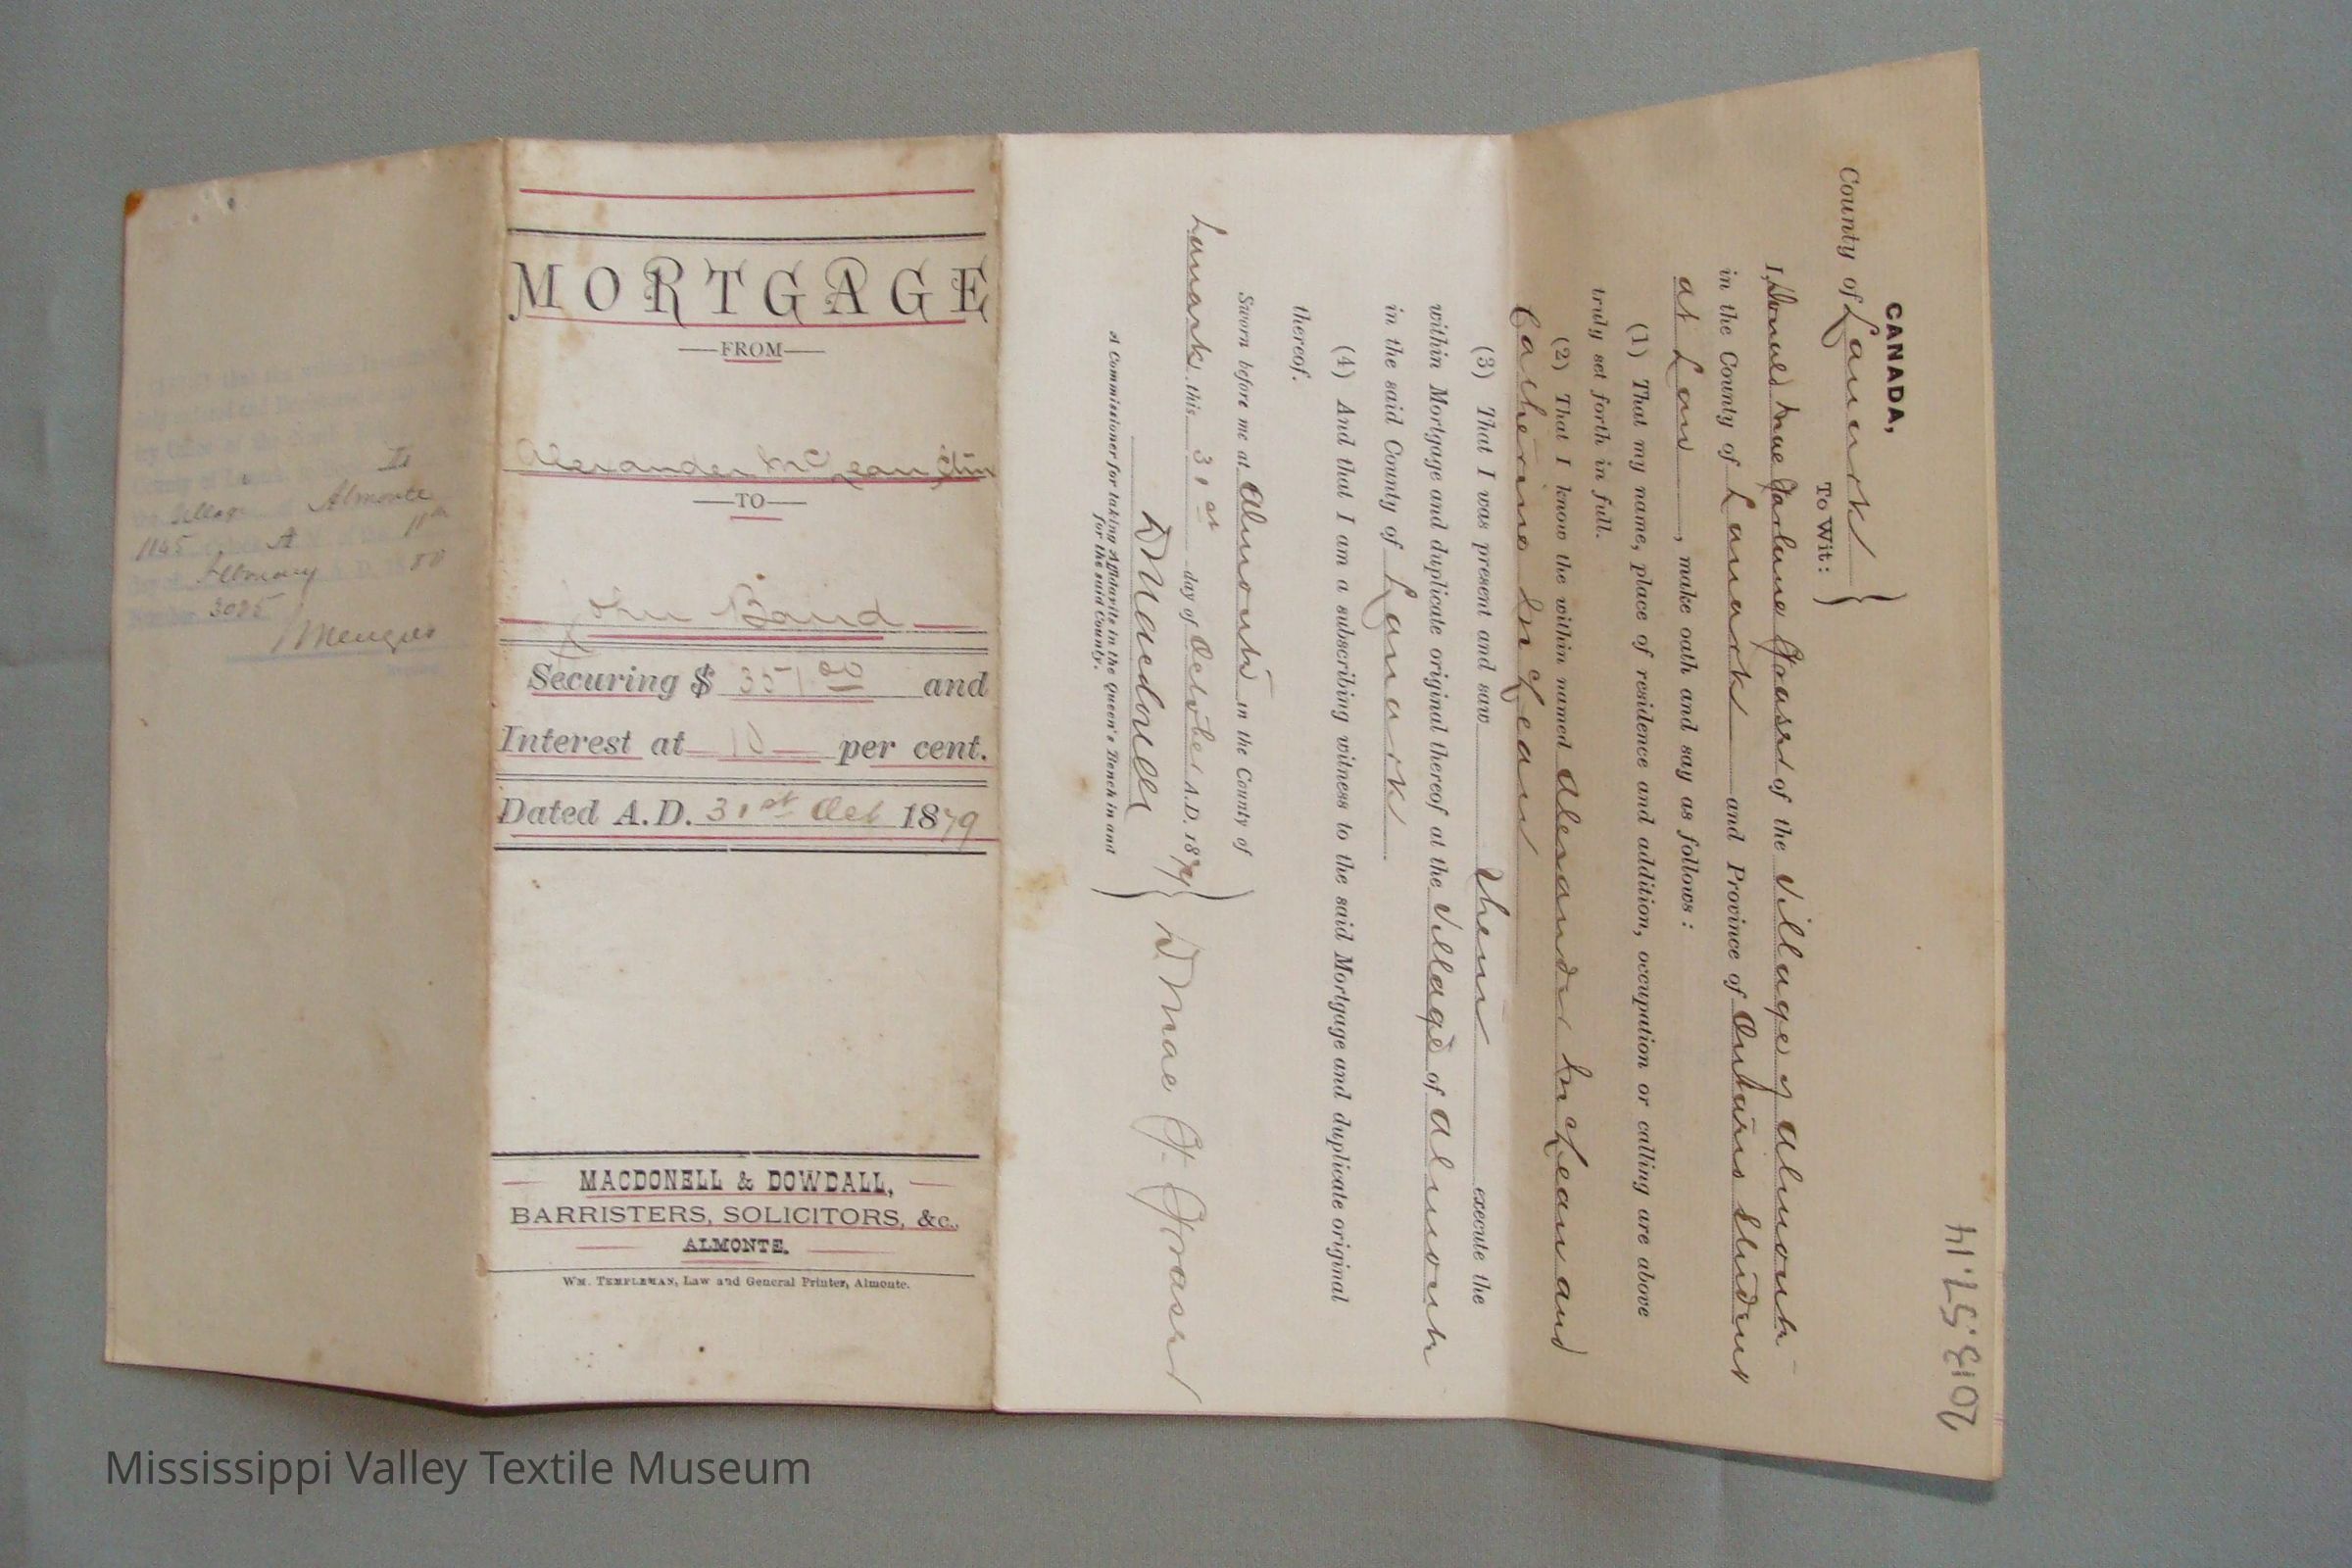 MORTGAGE
FROM
Alexander McLean
TO
John Baird
Securing $ 351.20 and
Interest at 10 per cent.
Dated A.D. 31st Oct 1879
MACDONELL & DOWDALL,
BARRISTERS, SOLICITORS, &c.,
ALMONTE.
WM. TEMPLEMAN, Law and General Printer, Almonte.
CANADA,
County of Lanark
To Wit:
I, of the Village of Almonte
in the County of Lanark and Province of Ontario Student
at Law, make oath and say as follows:
(1) That my name, place of residence and addition, occupation or calling are above
truly set forth in full.
(2) That I know the within named Alexander McLean and
Catherine McLean
(3) That I was present and saw them execute the
within Mortgage and duplicate original thereof at the Village of Almonte
in the said County of Lanark.
(4) And that I am a subscribing witness to the said Mortgage and duplicate original
thereof.
Sworn before me at Almonte in the County of
Lanark this 31st day of October A.D. 1879
D Macdonell
D Mac J. Fraser
A Commissioner for taking affidavits in the Queen's Bench in and
for the said County.
Village of Almonte
1145 A 11th
February 80
Number 3025
Menzies
2013.57.14
Mississippi Valley Textile Museum